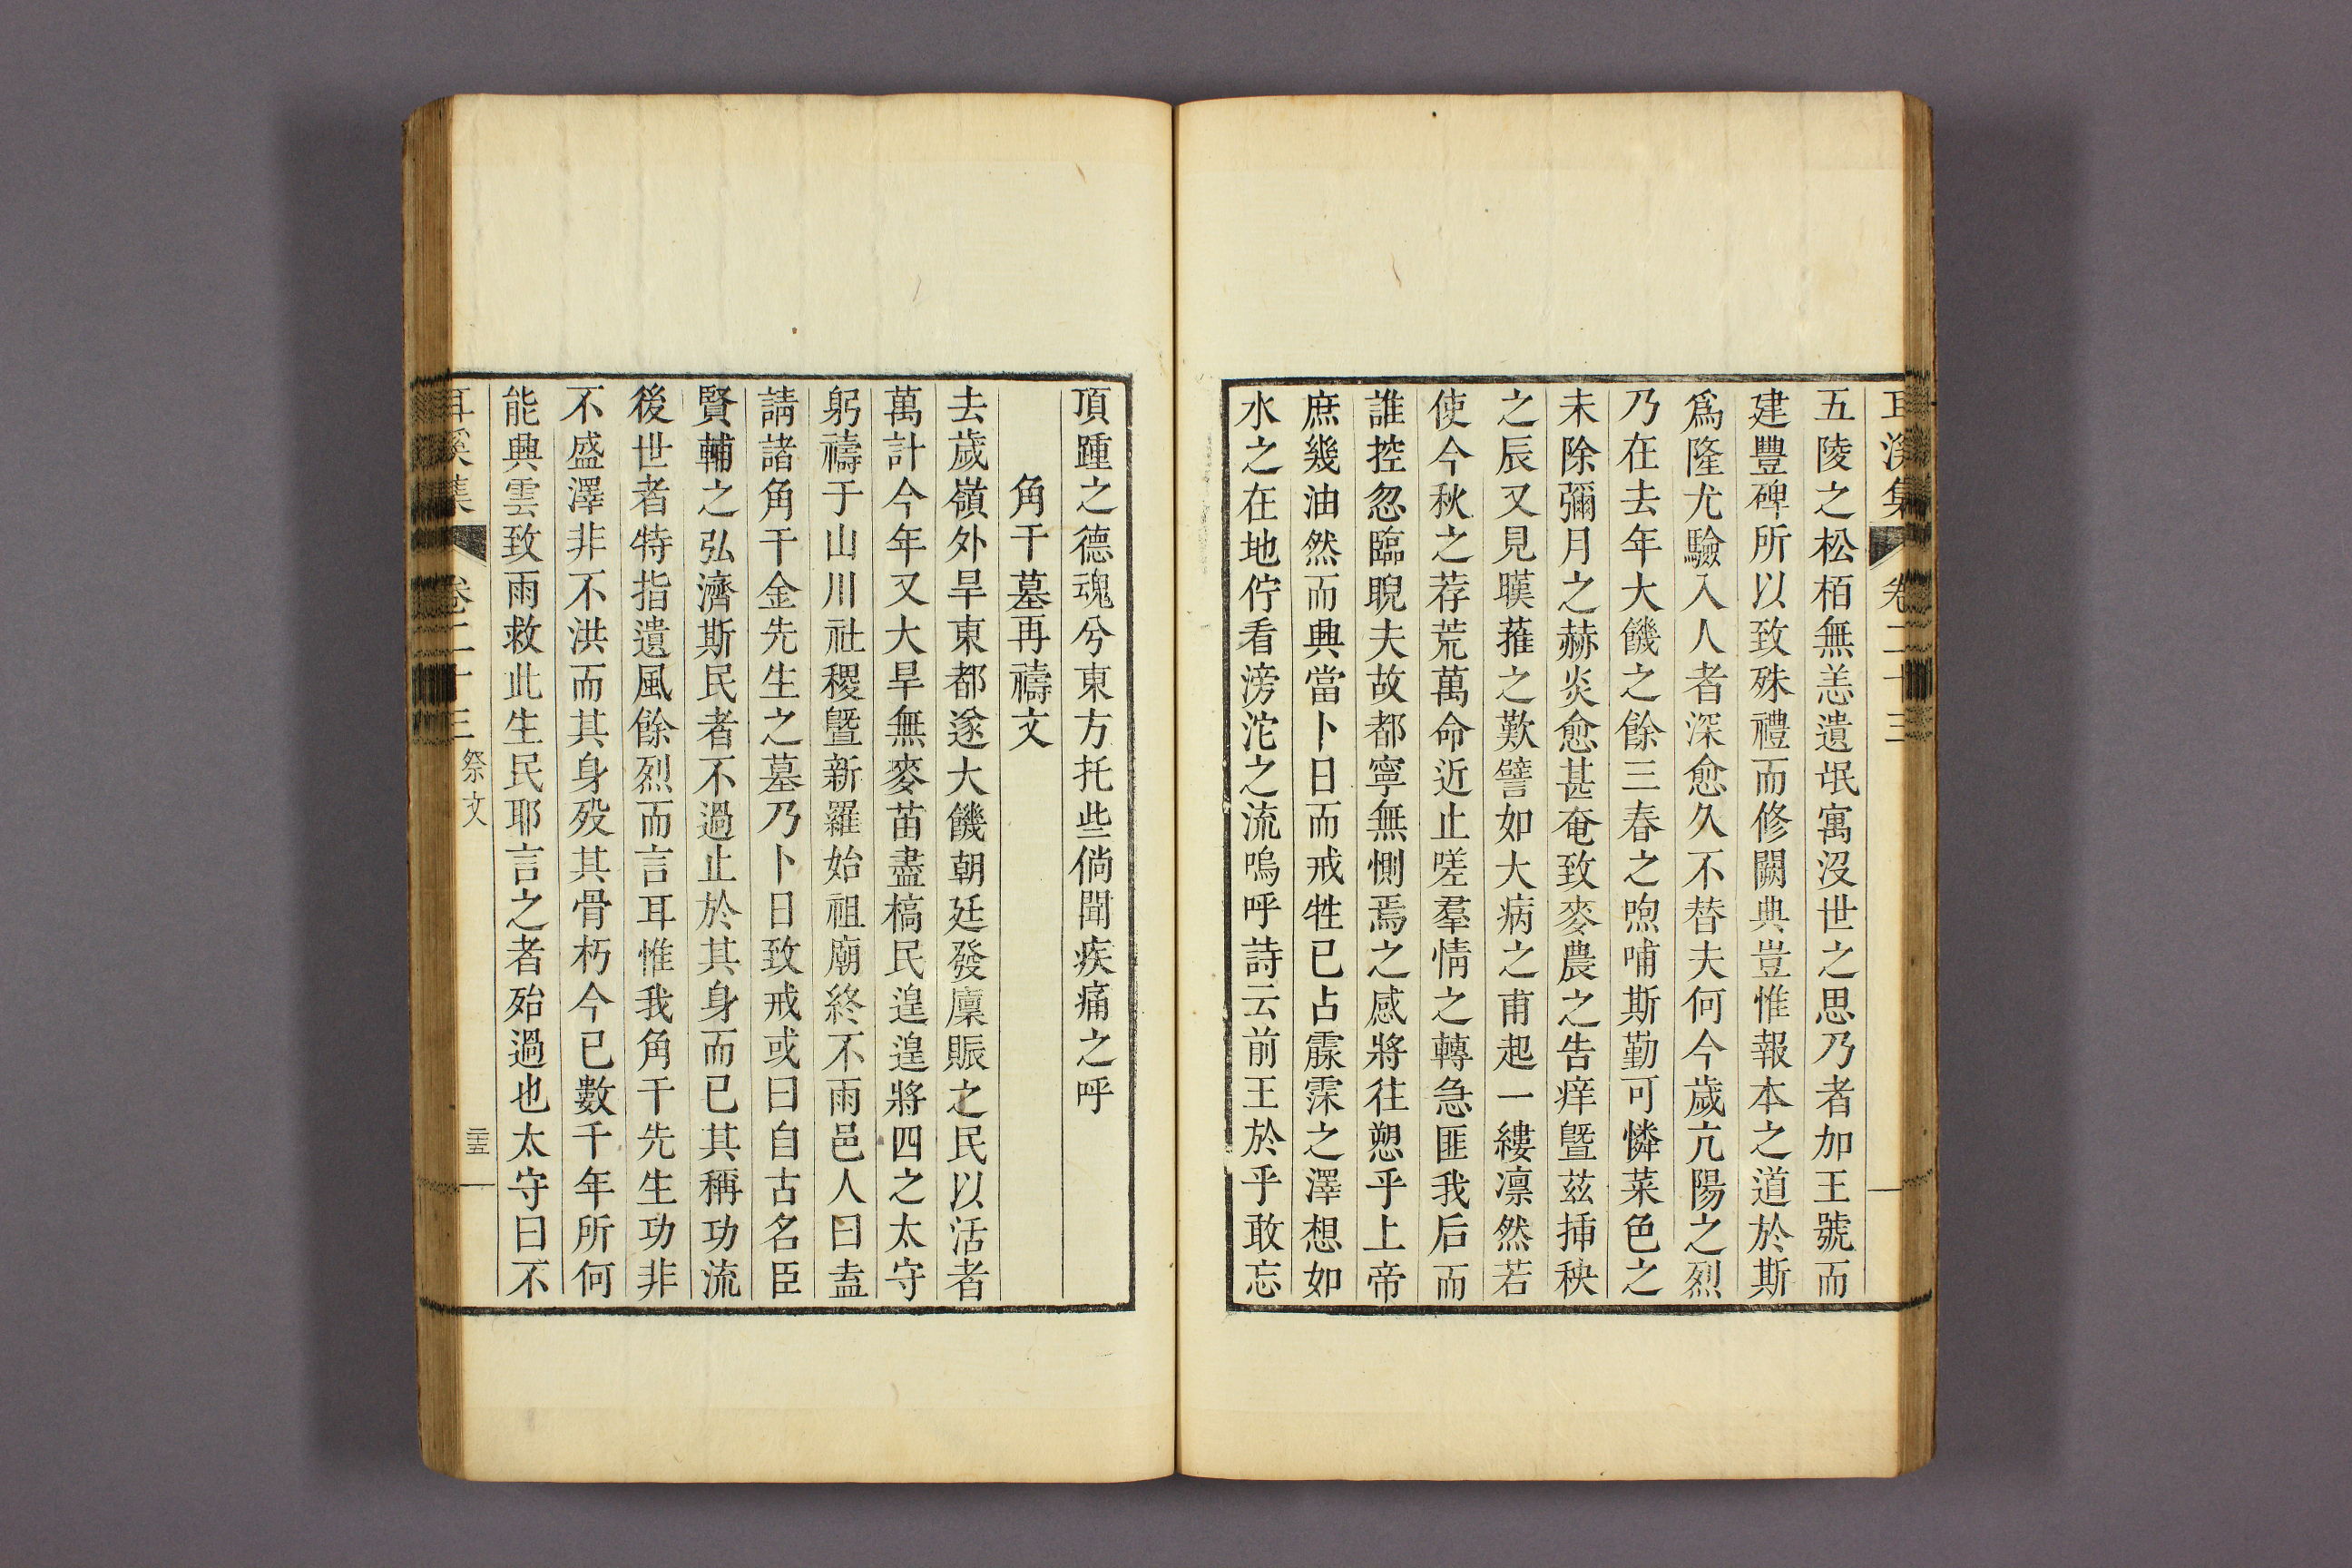 耳溪集 卷二十三
五陵之松栢無恙遺氓寓沒世之思乃者加王號而
建豐碑所以致殊禮而修闕典豈惟報本之道於斯
爲隆尤驗入人者深愈久不替夫何今歲亢陽之烈
乃在去年大饑之餘三春之喣哺斯勤可憐菜色之
未除彌月之赫炎愈甚奄致麥農之告痒曁玆揷秧
之辰又見暵蓷之歎譬如大病之甫起一縷凛然若
使今秋之荐荒萬命近止嗟羣情之轉急匪我后而
誰控忽臨睨夫故都寧無惻焉之感將往愬乎上帝
庶幾油然而興當卜日而戒牲已占霡霂之澤想如
水之在地佇看滂沱之流嗚呼詩云前王於乎敢忘
頂踵之德魂兮東方托些倘聞疾痛之呼
角干墓再禱文
去歲嶺外旱東都遂大饑朝廷發廩賑之民以活者
萬計今年又大旱無麥苗盡槁民遑遑將四之太守
躬禱于山川社稷曁新羅始祖廟終不雨邑人曰盍
請諸角干金先生之墓乃卜日致戒或曰自古名臣
賢輔之弘濟斯民者不過止於其身而已其稱功流
後世者特指遺風餘烈而言耳惟我角干先生功非
不盛澤非不洪而其身歿其骨朽今已數千年所何
能興雲致雨救此生民耶言之者殆過也太守曰不
耳溪集 卷二十三 祭文 三五